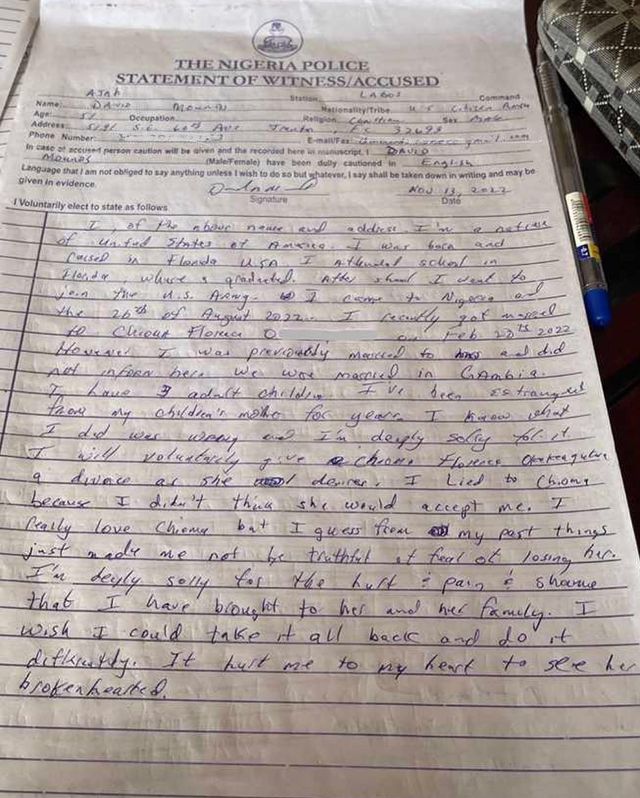 THE NIGERIA POLICE
STATEMENT OF WITNESS/ACCUSED
AJAH Station: LAGOS Command
Name: DAVID Nationality/Tribe: U S Citizen
Age: 51 Occupation: Religion Christian Sex Male
Address: S.E. 60th Ave Trenton, FL 32693
Phone Number: E-mail/Fax: gmail.com
In case of accused person caution will be given and the recorded here in manuscript. I DAVID
(Male/Female) have been dully cautioned in English
Language that I am not obliged to say anything unless I wish to do so but whatever, I say shall be taken down in writing and may be
given in evidence.
NOV 13, 2022
Signature Date
I Voluntarily elect to state as follows
I, of the above name and address I'm a native
of United States of America. I was born and
raised in Florida USA I attended school in
Florida where I graduated. After school I went to
join the U.S. Army. I came to Nigeria on
the 26th of August 2022. I recently got married
to Chioma Florence O on Feb 28th 2022
However I was previously married to and did
not inform her. We was married in Gambia.
I have 3 adult children. I've been estranged
from my children's mother for years. I know what
I did was wrong and I'm deeply sorry for it.
I will voluntarily give Chioma Florence
a divorce as she desires. I lied to Chioma
because I didn't think she would accept me. I
really love Chioma but I guess from my past things
just made me not be truthful of fear of losing her.
I'm deyly solly for the hurt & pain & shame
that I have brought to her and her family. I
wish I could take it all back and do it
differently. It hurt me to my heart to see her
brokenhearted.